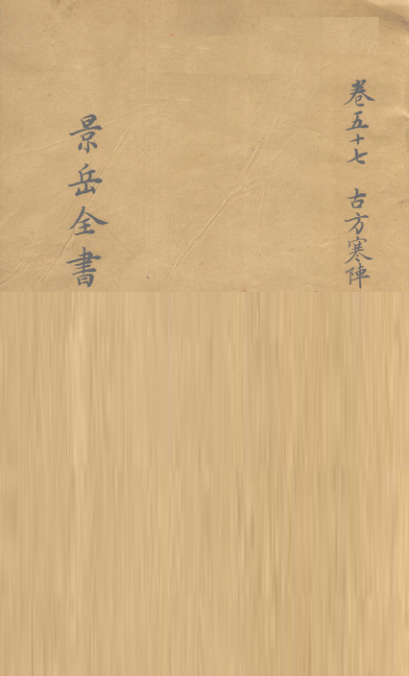 卷五十七 古方寒陣
景岳全書